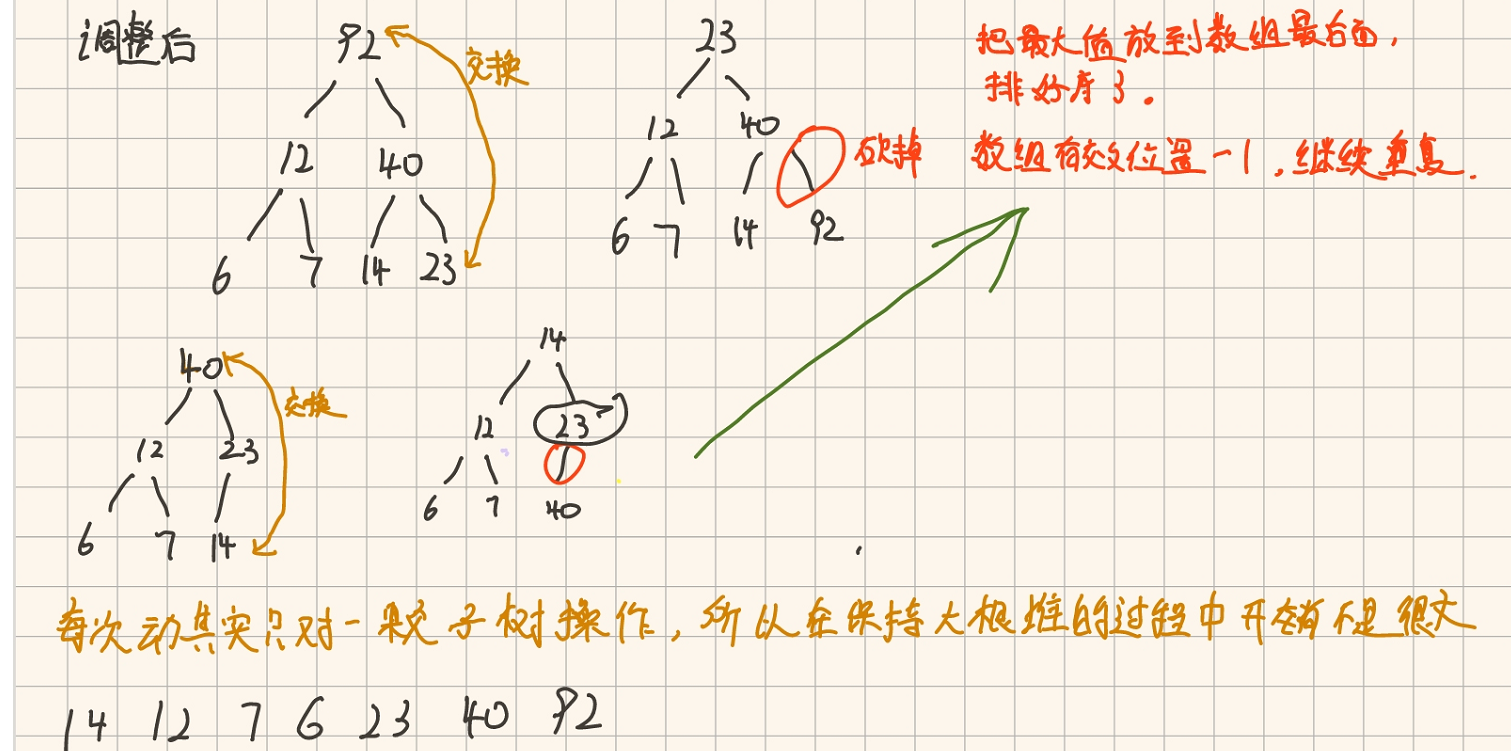 调整后
92
交换
12 40
6 7 14 23
23
12 40
6 7 14 92
把最大值放到数组最后面,
排好序了.
砍掉 数组有效位置-1,继续重复.
40
交换
12 23
6 7 14
14
12 23
6 7 40
每次动其实只对一颗子树操作,所以在保持大根堆的过程中开销不是很大
14 12 7 6 23 40 92